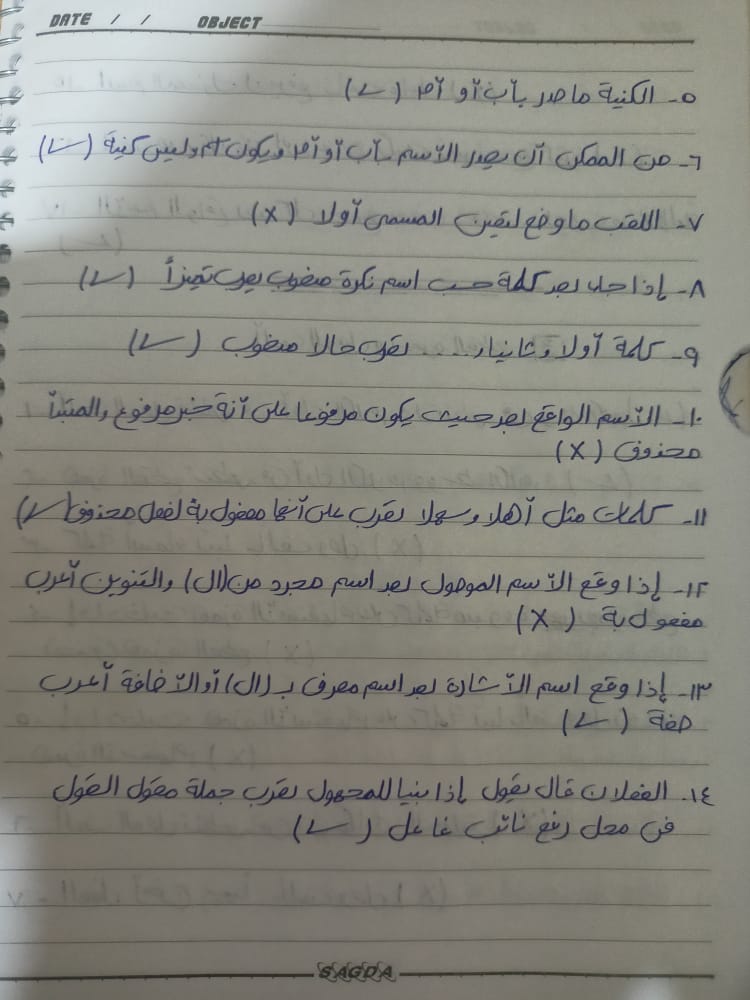 DATE / / OBJECT
٥- الكنية ما صدر بأب أو أم (✓)
٦- من الممكن أن يصدر الأسم بأب أو أم ويكون اسم وليس كنية (✓)
٧- اللقب ما وضع لتعين المسمى أولا (X)
٨- إذا جاء بعد كلمة حسب اسم نكرة منصوب يعرب تميزاً (✓)
٩- كلمة أولا وثانيا، .... تعرب حالا منصوب (✓)
١٠- الأسم الواقع بعد حيث يكون مرفوعا على أنة خبر مرفوع والمتبدأ
محذوف (X)
١١- كلمات مثل أهلا وسهلا تعرب على أنها مفعول بة لفعل محذوف (✓)
١٢- إذا وقع الأسم الموصول بعد اسم مجرد من (ال) والتنوين أعرب
مفعول بة (X)
١٣- إذا وقع اسم الأشارة بعد اسم معرف بـ (ال) أو الأضافة أعرب
صفة (✓)
١٤- الفعلان قال يقول إذا بنيا للمجهول تعرب جملة مقول القول
فى محل رفع نائب فاعل (✓)
SAGDA